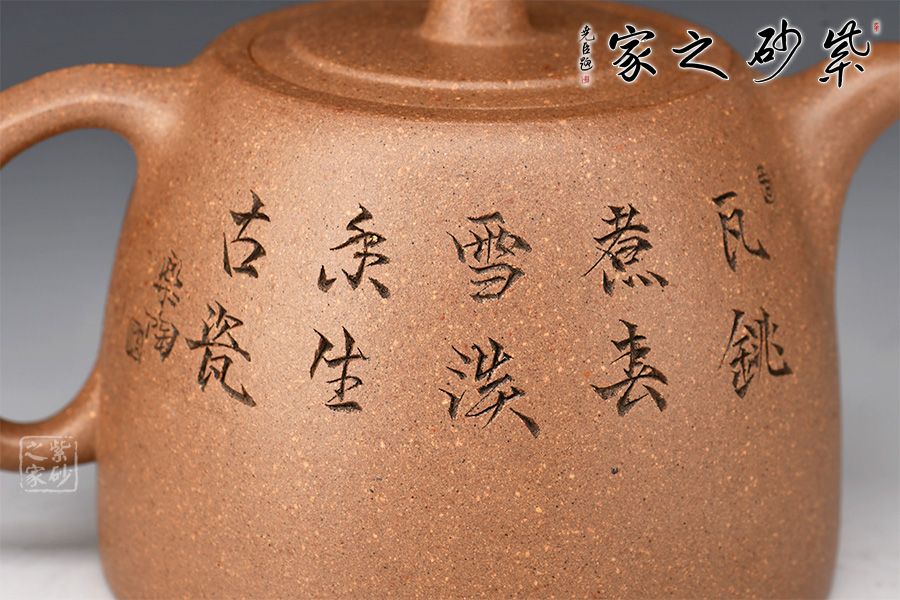 紫砂之家
瓦銚
煮春
雪淡
香生
古瓷
樂陶
紫砂之家